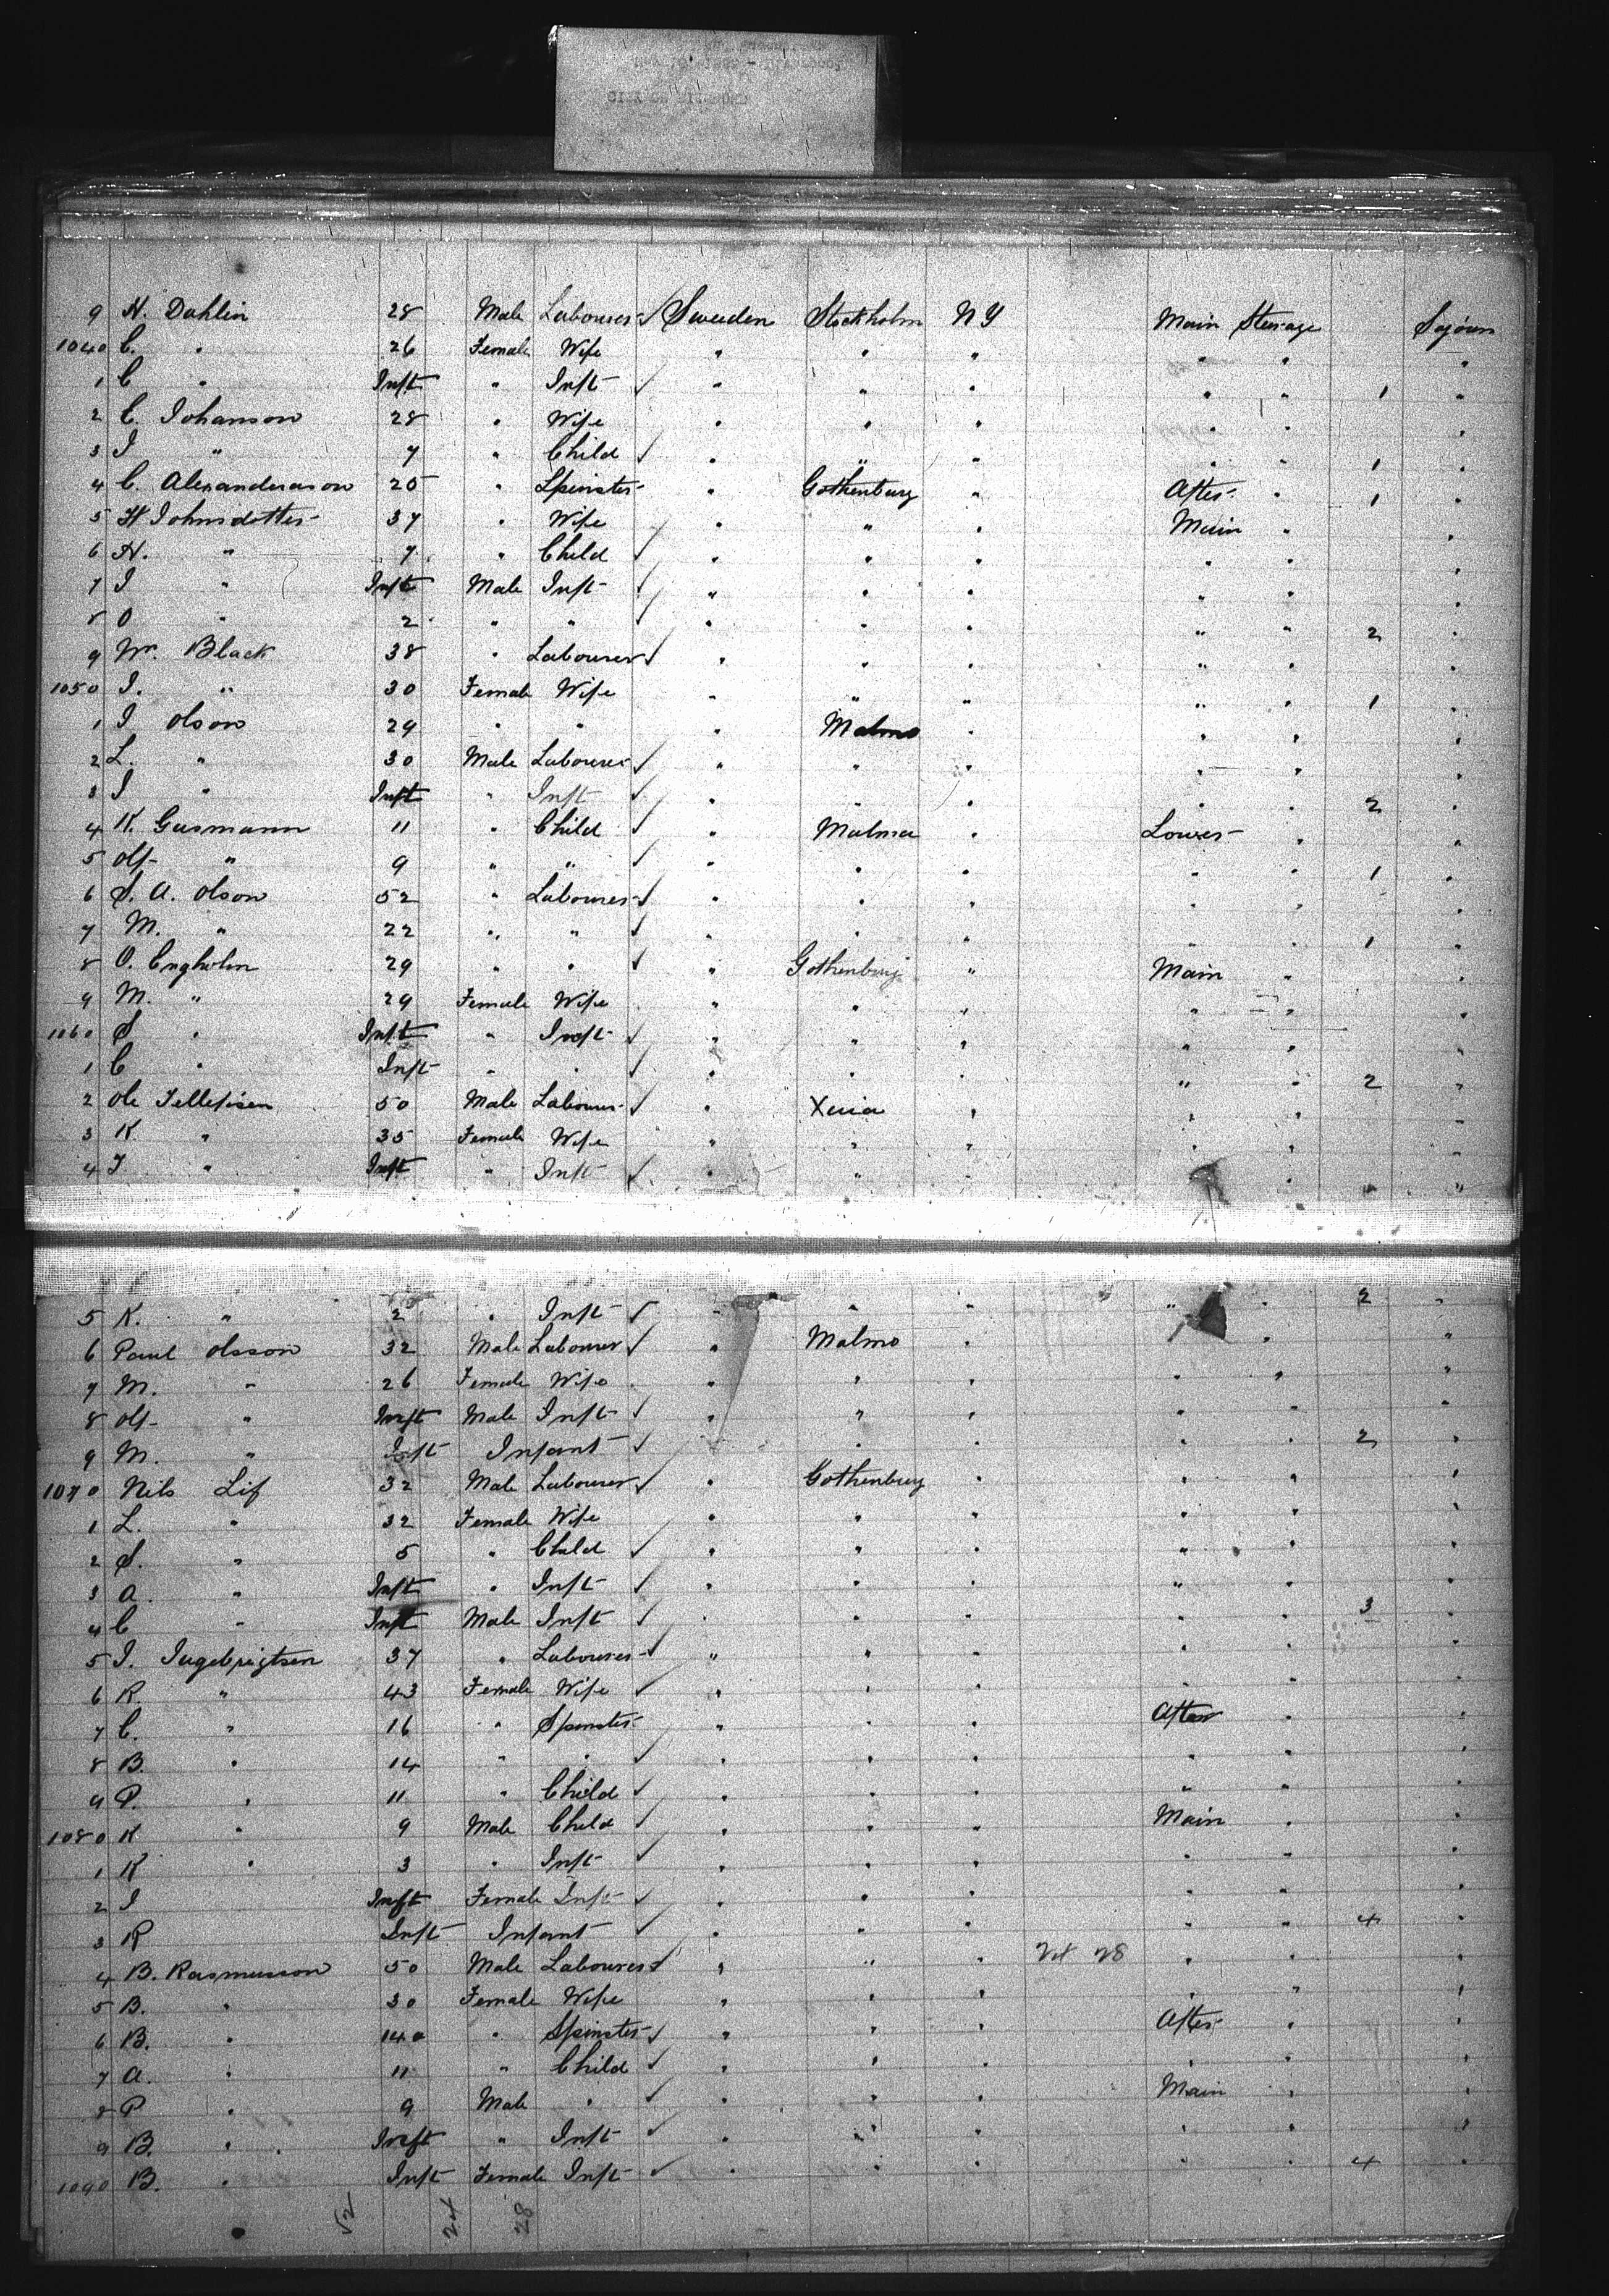 9 H. Dahlin 28 Male Labourer ✓ Sweden Stockholm NY Main Steerage Sojourn
1040 C. " 26 Female Wife " " " " " "
1 C " Inft " Inft ✓ " " " " " 1 "
2 C. Johanson 28 " Wife " " " " " "
3 I " 7 " Child ✓ " " " " " 1 "
4 C. Alexanderason 25 " Spinster " Gothenburg " After " 1 "
5 H Johnsdotter 37 " Wife " " " Main " "
6 H. " 7 " Child ✓ " " " " " "
7 I " Inft Male Inft ✓ " " " " " "
8 O " 2 " " ✓ " " " " " 2 "
9 Wm. Black 38 " Labourer ✓ " " " " " "
1050 I. " 30 Female Wife " " " " " 1 "
1 I Olson 29 " " " Malmo " " " "
2 L. " 30 Male Labourer ✓ " " " " " "
3 I " Inft " Inft ✓ " " " " " 2 "
4 K. Gusmann 11 " Child ✓ " Malma " Lower " "
5 Olf " 9 " " ✓ " " " " " 1 "
6 S. A. Olson 52 " Labourer ✓ " " " " " "
7 M. " 22 " " ✓ " " " " " 1 "
8 O. Engholm 29 " " ✓ " Gothenburg " Main " "
9 M. " 29 Female Wife " " " " " "
1060 S " Inft " Inft ✓ " " " " " "
1 C " Inft " " ✓ " " " " " 2 "
2 Ole 50 Male Labourer ✓ " " " " "
3 K " 35 Female Wife " " " " " "
4 T " Inft " Inft ✓ " " " " "
5 K. " 2 " Inft ✓ " " " " " 2 "
6 Paul Olsson 32 Male Labourer ✓ " Malmo " " "
7 M. " 26 Female Wife " " " " " "
8 Olf " Inft Male Inft ✓ " " " " " "
9 M. " Inft Infant ✓ " " " " " 2 "
1070 Nils Lif 32 Male Labourer ✓ " Gothenburg " " " "
1 L. " 32 Female Wife " " " " " "
2 S. " 5 " Child ✓ " " " " " "
3 A. " Inft " Inft ✓ " " " " " "
4 C " Inft Male Inft ✓ " " " " " 3 "
5 I. Ingebrigtsen 37 " Labourer ✓ " " " " " "
6 K. " 43 Female Wife ✓ " " " " " "
7 C. " 16 " Spinster " " " After " "
8 B. " 14 " " ✓ " " " " " "
9 P. " 11 " Child ✓ " " " " " "
1080 K " 9 Male Child ✓ " " " Main " "
1 K " 3 " Inft ✓ " " " " " "
2 I " Inft Female Inft ✓ " " " " " "
3 R Inft Infant ✓ " " " " " 4 "
4 B. Rasmusson 50 Male Labourer ✓ " " " 24 28 " " "
5 B. " 30 Female Wife " " " " " "
6 B. " 14 " Spinster ✓ " " " After " "
7 A. " 11 " Child ✓ " " " " " "
8 P " 9 Male " ✓ " " " Main " "
9 B. " Inft " Inft ✓ " " " " " "
1090 B. " Inft Female Inft ✓ " " " " " 4 "
52 24 28